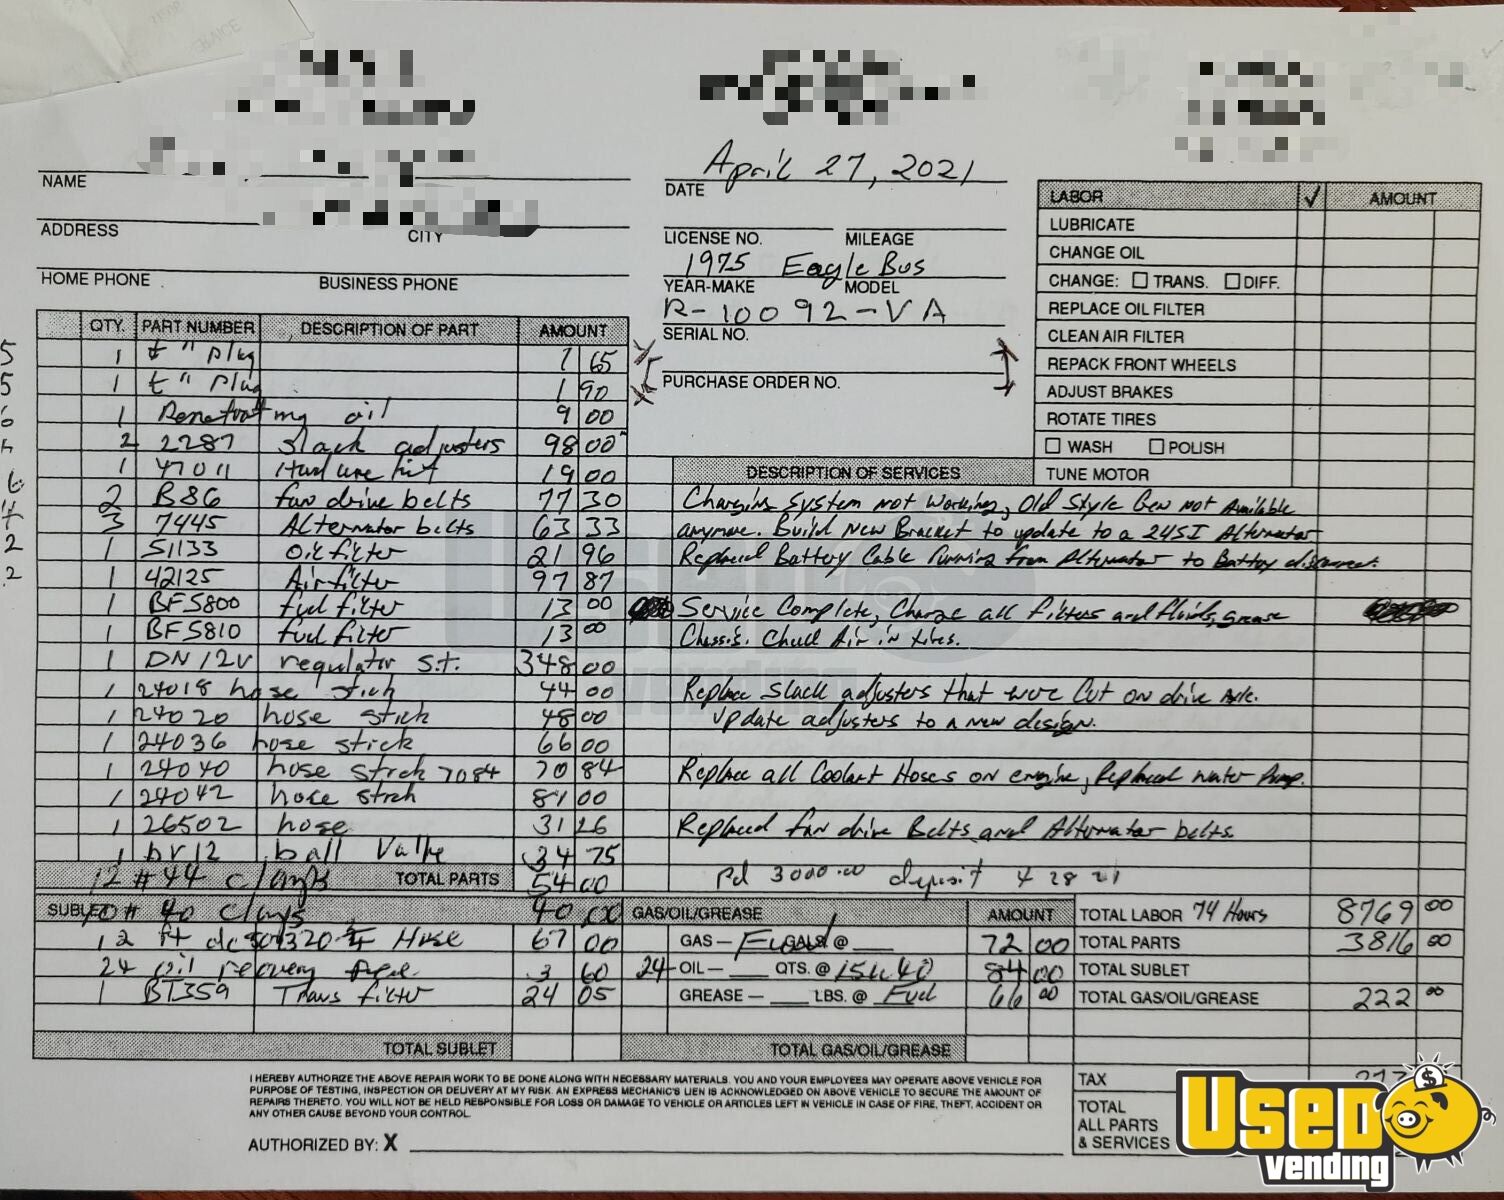 April 27, 2021
NAME
DATE
ADDRESS
CITY
LICENSE NO. MILEAGE
1975 Eagle Bus
HOME PHONE BUSINESS PHONE
YEAR-MAKE MODEL
R-10092-VA
SERIAL NO.
PURCHASE ORDER NO.
LABOR ✓ AMOUNT
LUBRICATE
CHANGE OIL
CHANGE: ☐ TRANS. ☐ DIFF.
REPLACE OIL FILTER
CLEAN AIR FILTER
REPACK FRONT WHEELS
ADJUST BRAKES
ROTATE TIRES
☐ WASH ☐ POLISH
TUNE MOTOR
QTY. PART NUMBER DESCRIPTION OF PART AMOUNT
1 " plug 65
1 " plug 1 90
1 Penetrating oil 9 00
2 2287 slack adjusters 98 00
1 47011 19 00
2 B86 fan drive belts 77 30
3 7445 Alternator belts 63 33
1 51133 oil filter 21 96
1 42125 Air filter 97 87
1 BF5800 fuel filter 13 00
1 BF5810 fuel filter 13 00
1 DN 12V regulator s.t. 348 00
1 24018 hose stick 44 00
1 24020 hose stick 48 00
1 24036 hose stick 66 00
1 24040 hose stick 7084 70 84
1 24042 hose stick 81 00
1 26502 hose 31 26
1 bv12 ball Valve 34 75
12 #44 clamps TOTAL PARTS 54 00
SUBLET 10 # 40 clamps 40 00
12 ft Hose 67 00
24 oil recovery 3 60
1 BT359 Trans filter 24 05
TOTAL SUBLET
DESCRIPTION OF SERVICES
Charging System not working, Old Style Gen not Available
anymore. Build New Bracket to update to a 24SI Alternator
Replaced Battery Cable running from Alternator to Battery
Service Complete, Change all filters and fluids, grease
Chassis. Check Air in tires.
Replace Slack adjusters that were Cut on drive Axle.
update adjusters to a new design.
Replace all Coolant Hoses on engine, Replaced water Pump.
Replaced fan drive Belts and Alternator belts.
Pd 3000.00 deposit 4 28 21
GAS/OIL/GREASE AMOUNT
GAS— GALS @ 72 00
24 OIL— QTS. @ 15W40 84 00
GREASE— LBS. @ Fuel 66 00
TOTAL GAS/OIL/GREASE
TOTAL LABOR 74 Hours 8769 00
TOTAL PARTS 3816 00
TOTAL SUBLET
TOTAL GAS/OIL/GREASE 222 00
TAX
TOTAL
ALL PARTS
& SERVICES
I HEREBY AUTHORIZE THE ABOVE REPAIR WORK TO BE DONE ALONG WITH NECESSARY MATERIALS. YOU AND YOUR EMPLOYEES MAY OPERATE ABOVE VEHICLE FOR
PURPOSE OF TESTING, INSPECTION OR DELIVERY AT MY RISK. AN EXPRESS MECHANIC'S LIEN IS ACKNOWLEDGED ON ABOVE VEHICLE TO SECURE THE AMOUNT OF
REPAIRS THERETO. YOU WILL NOT BE HELD RESPONSIBLE FOR LOSS OR DAMAGE TO VEHICLE OR ARTICLES LEFT IN VEHICLE IN CASE OF FIRE, THEFT, ACCIDENT OR
ANY OTHER CAUSE BEYOND YOUR CONTROL.
AUTHORIZED BY: X
USED
vending